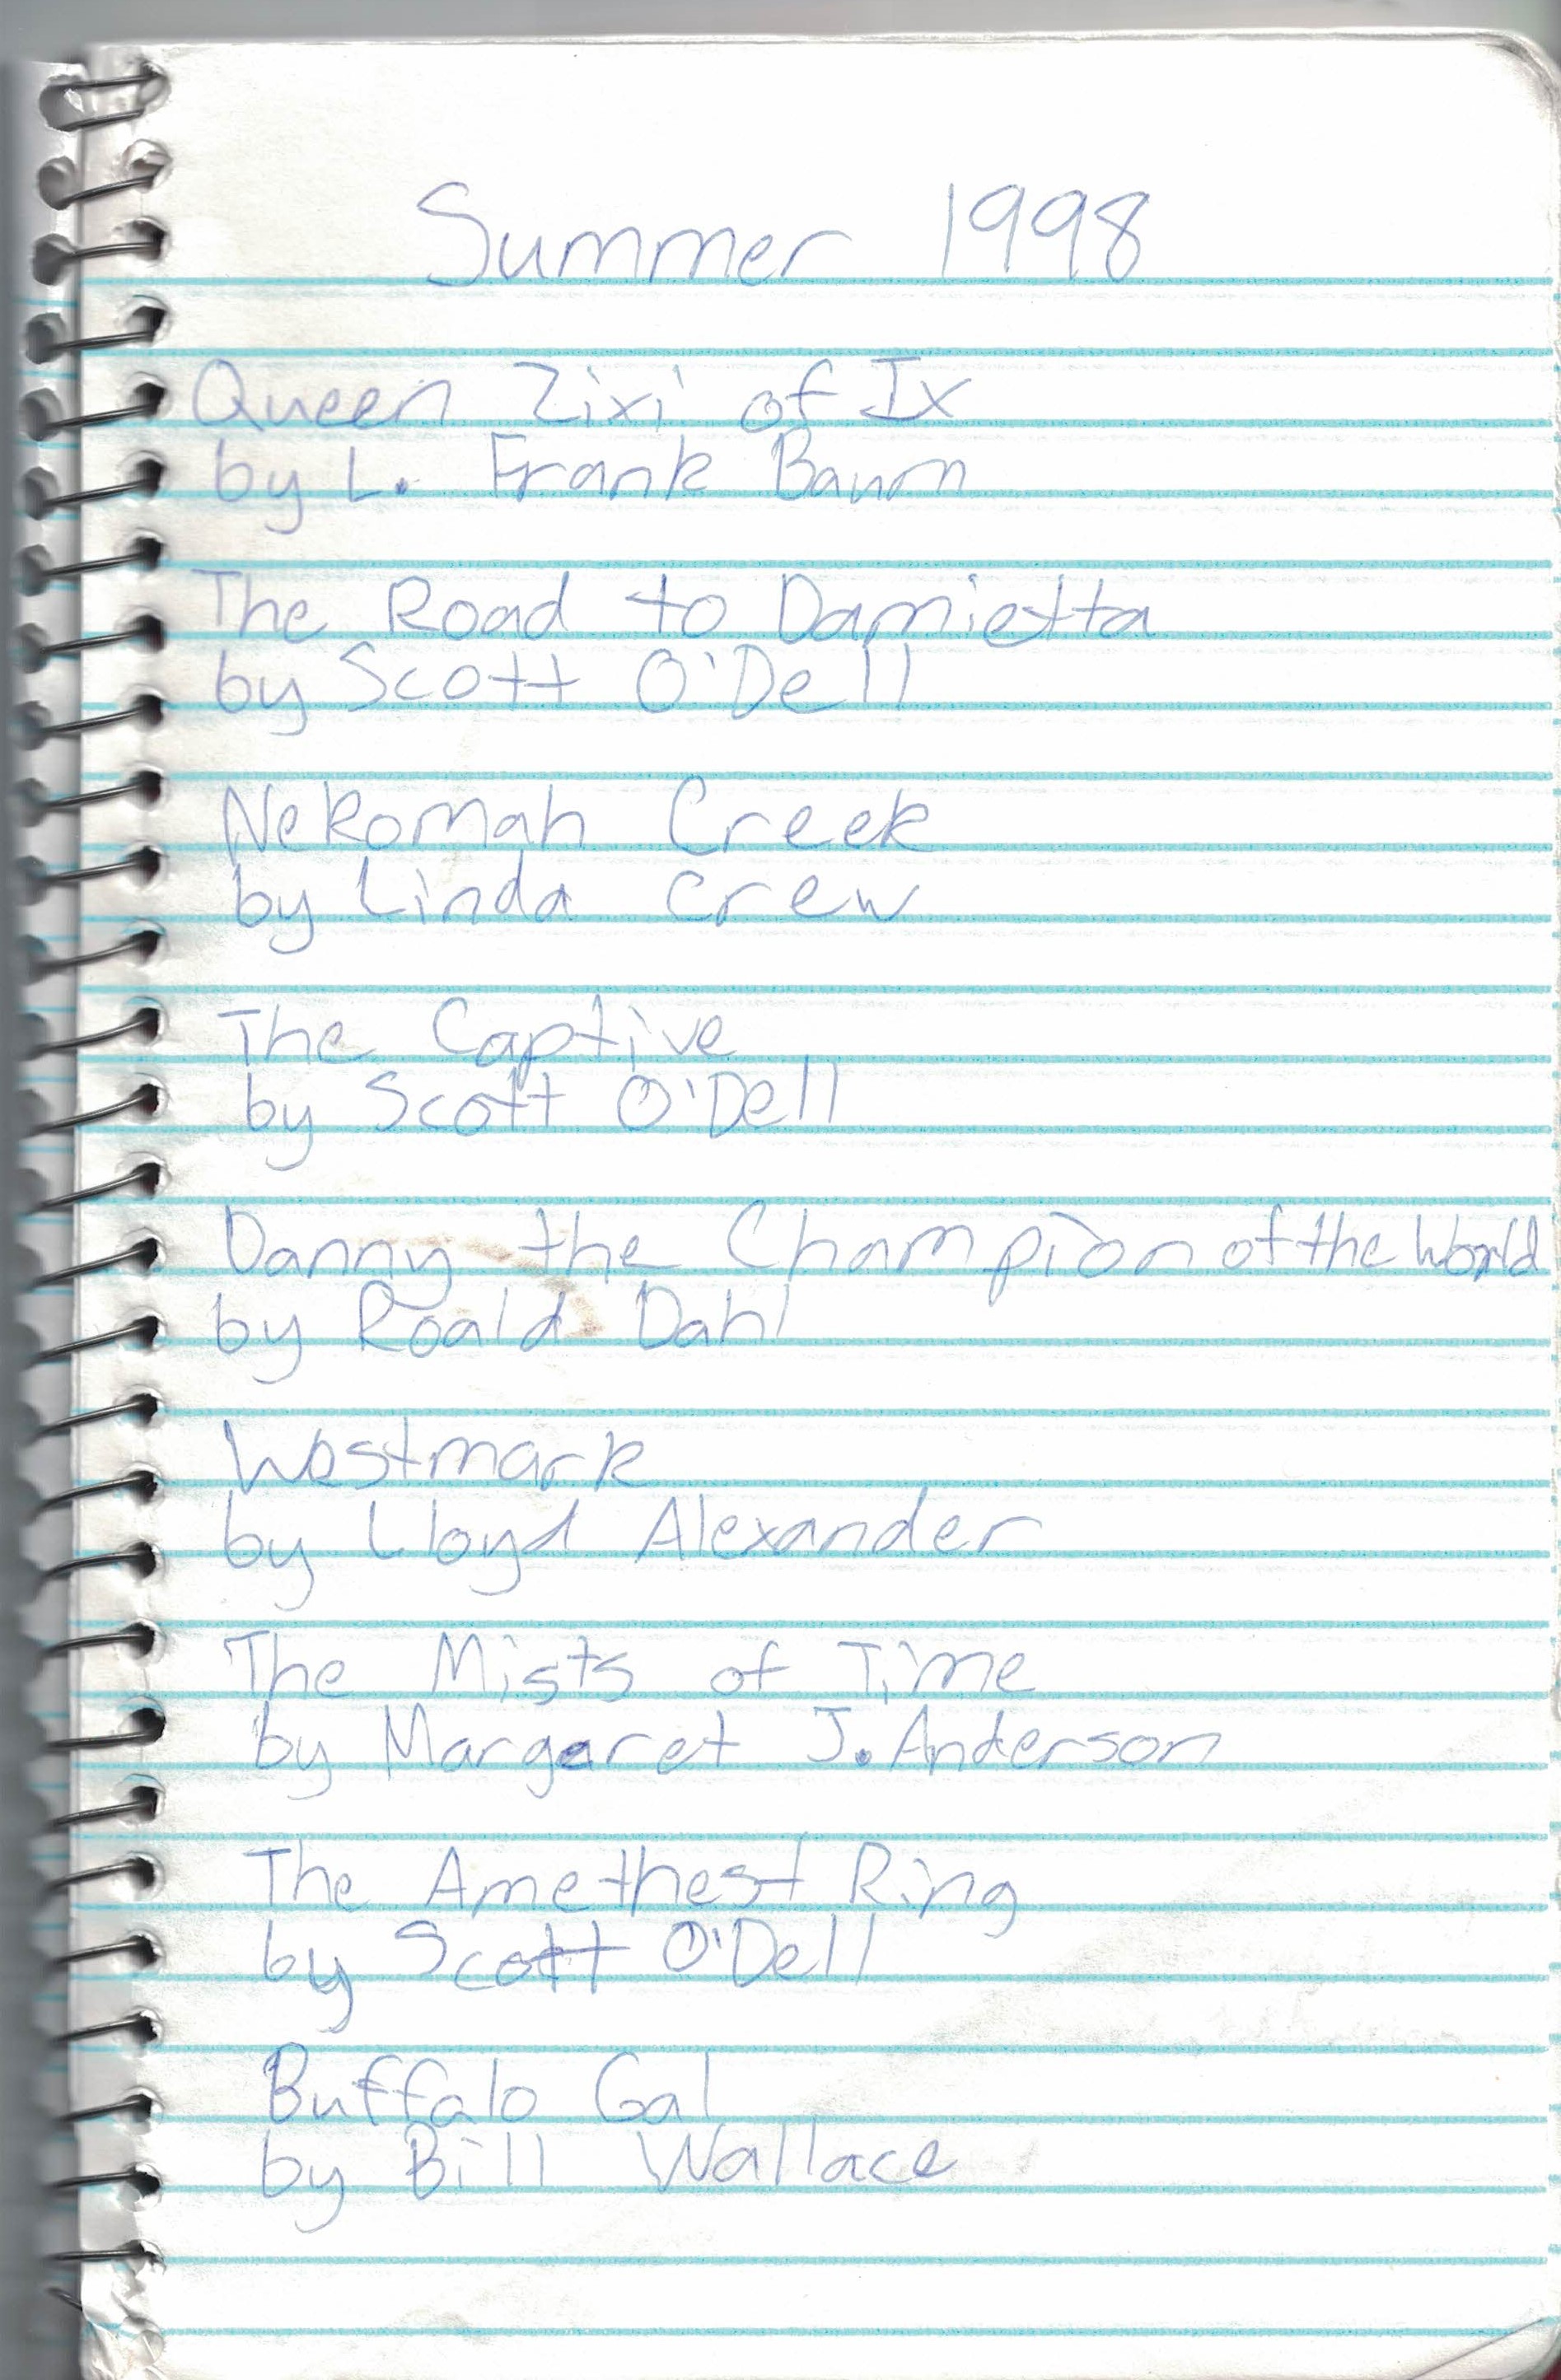 Summer 1998
Queen Zixi of Ix
by L. Frank Baum
The Road to Damietta
by Scott O'Dell
Nekomah Creek
by Linda Crew
The Captive
by Scott O'Dell
Danny the Champion of the World
by Roald Dahl
Westmark
by Lloyd Alexander
The Mists of Time
by Margaret J. Anderson
The Amethest Ring
by Scott O'Dell
Buffalo Gal
by Bill Wallace